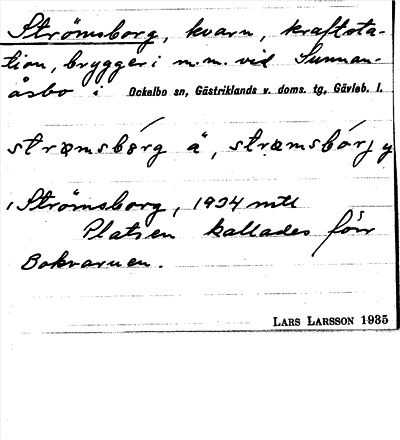 Strömsborg, kvarn, kraftsta-
tion, bryggeri m.m. vid Sunnan-
åsbo i Ockelbo sn, Gästriklands v. doms. tg, Gävleb. l.
stræmsbǿrg å, stræmsbórj y
Strömsborg, 1934 mtl
Platsen kallades förr
Bokvarnen.
LARS LARSSON 1935